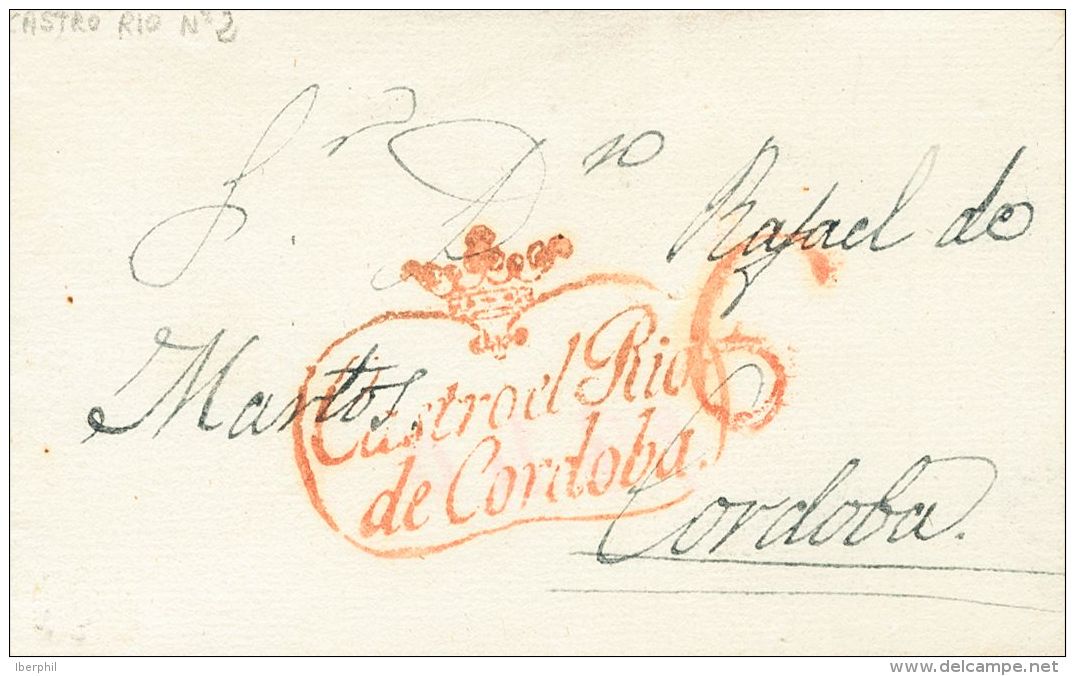 CASTRO RIO Nº 2
Sr Dn Rafael de
Martos,
Castro el Rio
de Cordoba.
6
Cordoba.
Iberphil
delcampe.net